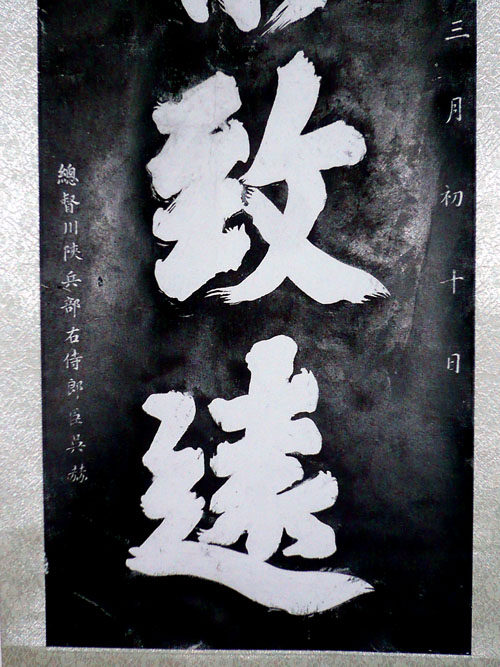 三月初十日
致遠
總督川陝兵部右侍郎臣吳赫